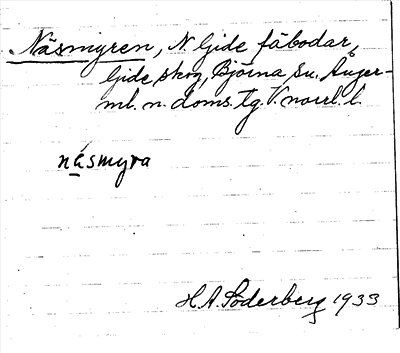 Näsmyren, N. Gide fäbodar,
Gide skog, Björna sn. Ånger-
ml. n. doms. tg. V. norrl. l.
näsmyra
H.A. Söderberg 1933